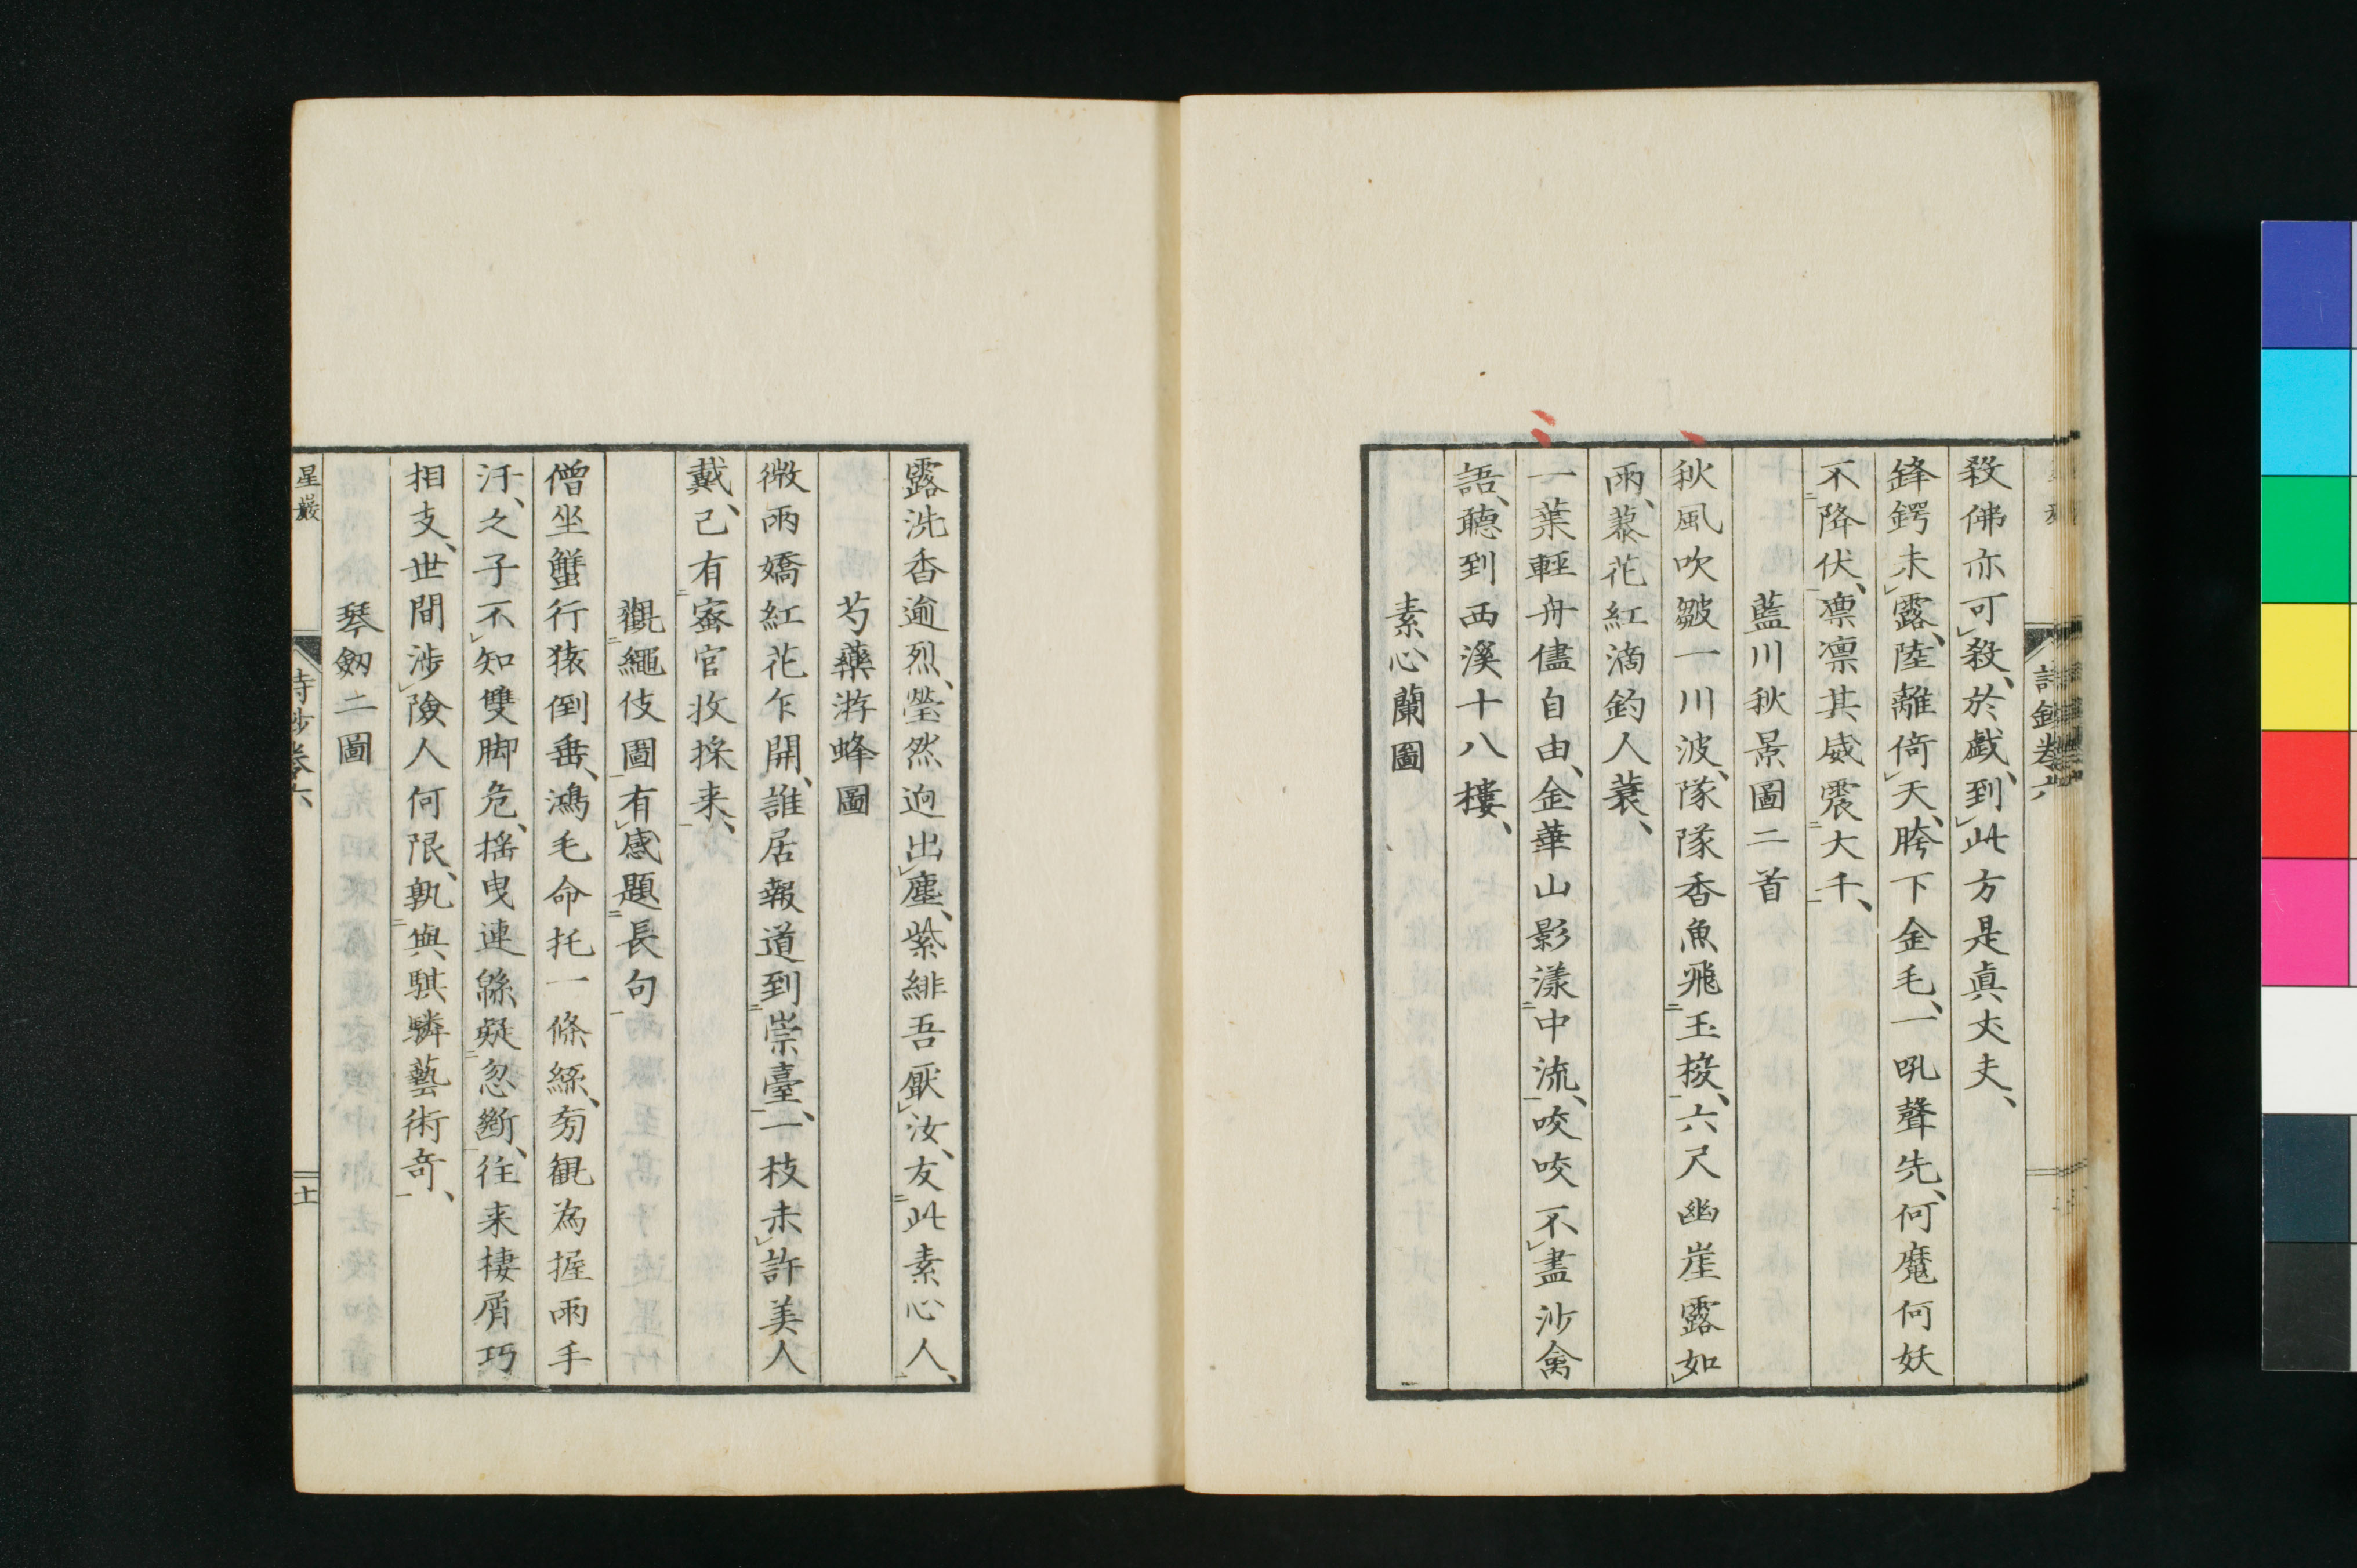 詩鈔卷六
殺佛亦可殺、於戯、到此方是眞丈夫、
鋒鍔未露、陸離倚天、胯下金毛、一吼聲先、何魔何妖
不降伏、凛凛其威震大千、
藍川秋景圖二首
秋風吹皺一川波、隊隊香魚飛玉梭、六尺幽崖露如
雨、蓼花紅滴釣人蓑、
一葉輕舟儘自由、金華山影漾中流、咬咬不盡沙禽
語、聴到西溪十八樓、
素心蘭圖
露洗香逾烈、瑩然迥出塵、紫緋吾厭汝、友此素心人、
芍藥游蜂圖
微雨嬌紅花乍開、誰居報道到崇臺、一枝未許美人
戴、己有蜜官收採来、
觀繩伎圖有感題長句
僧坐蟹行猿倒垂、鴻毛命托一條絲、旁観為握兩手
汗、之子不知雙脚危、揺曳連緜疑忽斷、往来棲屑巧
相支、世間渉險人何限、孰與騏驎藝術奇、
琴劔二圖
星巖
詩鈔卷六
十一